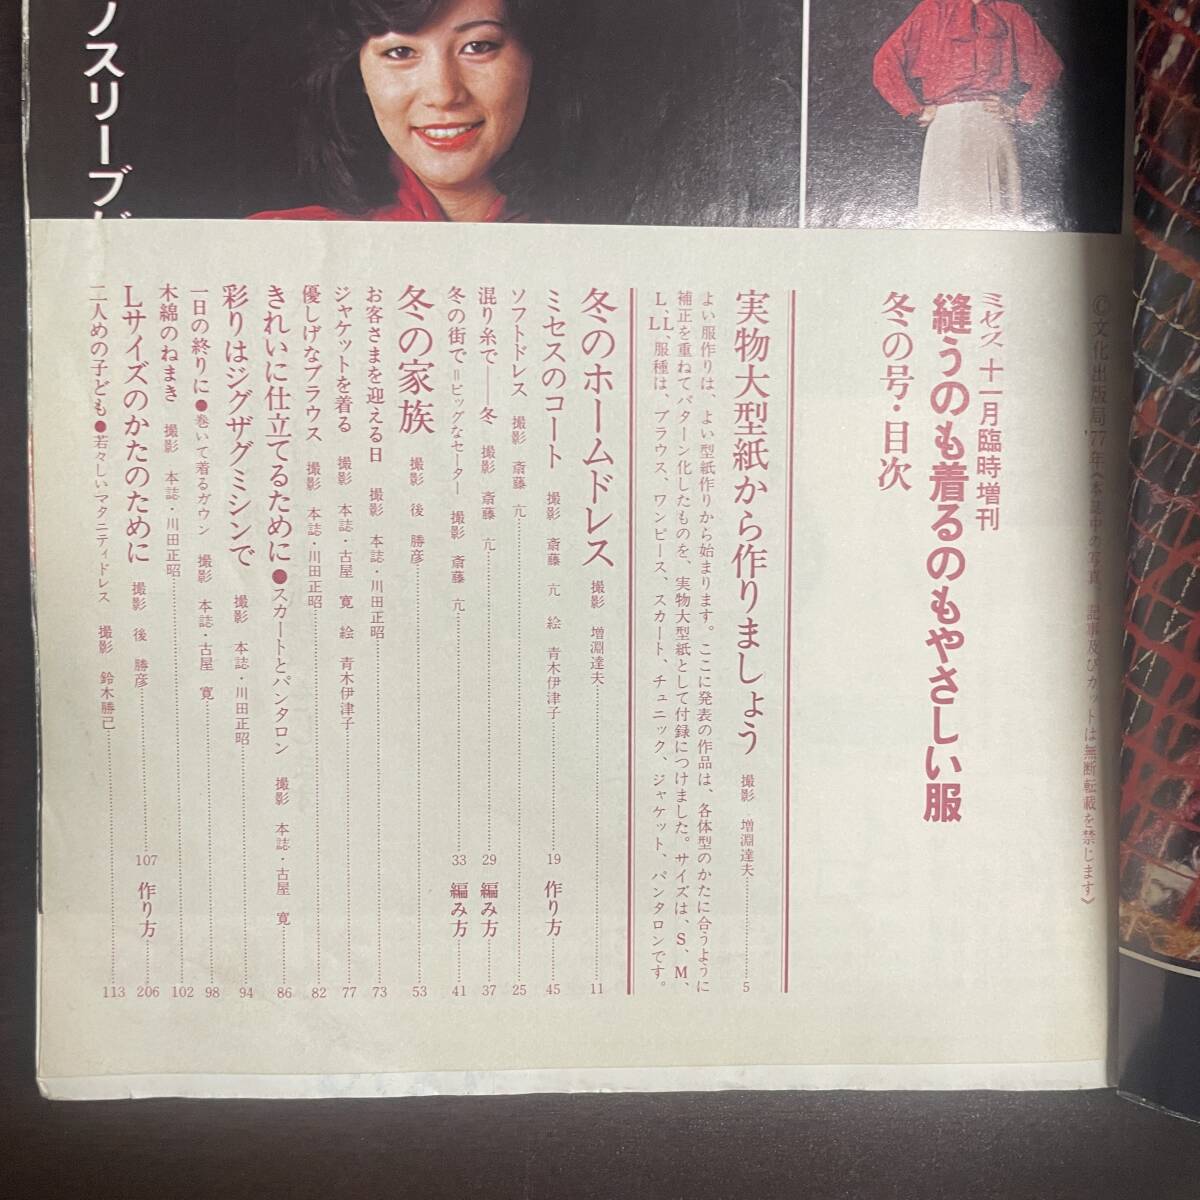 ©文化出版局'77年〈本誌中の写真、記事及びカットは無断転載を禁じます〉
ミセス 十一月臨時増刊
縫うのも着るのもやさしい服
冬の号・目次
実物大型紙から作りましょう 撮影 増淵達夫 5
よい服作りは、よい型紙作りから始まります。ここに発表の作品は、各体型のかたに合うように
補正を重ねてパターン化したものを、実物大型紙として付録につけました。サイズは、S、M、
L、LL、服種は、ブラウス、ワンピース、スカート、チュニック、ジャケット、パンタロンです。
冬のホームドレス 撮影 増淵達夫 11
ミセスのコート 撮影 斎藤 亢 絵 青木伊津子 19 作り方 45
ソフトドレス 撮影 斎藤 亢 25
混り糸で——冬 撮影 斎藤 亢 29 編み方 37
冬の街で=ビッグなセーター 撮影 斎藤 亢 33 編み方 41
冬の家族 撮影 後 勝彦 53
お客さまを迎える日 撮影 本誌・川田正昭 73
ジャケットを着る 撮影 本誌・古屋 寛 絵 青木伊津子 77
優しげなブラウス 撮影 本誌・川田正昭 82
きれいに仕立てるために●スカートとパンタロン 撮影 本誌・古屋 寛 86
彩りはジグザグミシンで 撮影 本誌・川田正昭 94
一日の終りに●巻いて着るガウン 撮影 本誌・古屋 寛 98
木綿のねまき 撮影 本誌・川田正昭 102
Lサイズのかたのために 撮影 後 勝彦 107 作り方 206
二人めの子ども●若々しいマタニティドレス 撮影 鈴木勝己 113
ノスリーブ